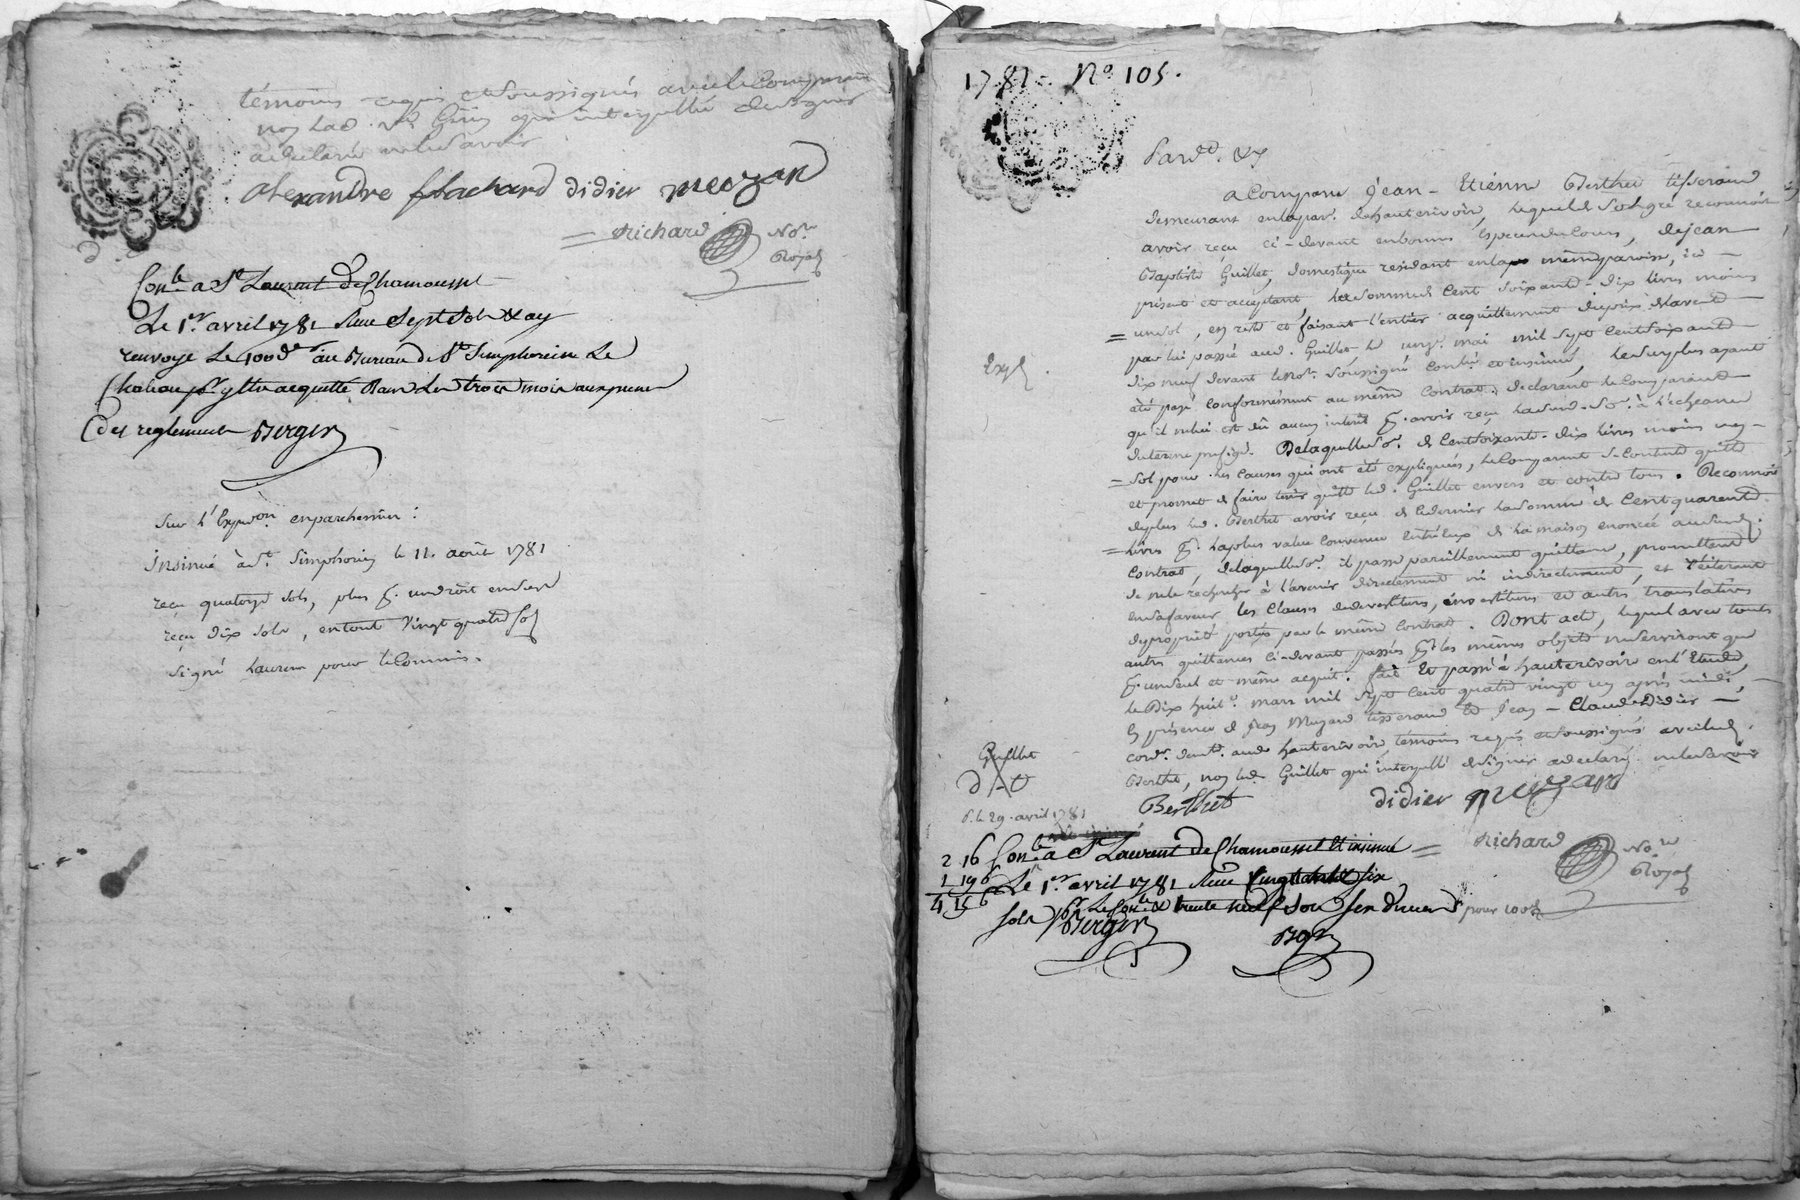 témoins requis et soussignés avec le comparant
non lad. ve. qui interpellée de signer
a déclaré ne le savoir
alexandre flachard didier mozan
Richard No.re
Royal
Con.lé a St Laurent de Chamousset
Le 1.er avril 1781 Reçu sept sols
renvoyé Le 100.e au Bureau de St Simphorien Le
Chateau pr y etre acquitté Dans Les trois mois aux peines
des reglements Berger
sur l'Exp.on en parchemin :
insinué à St. Simphorien le 11. août 1781
reçu quatorze sols, plus p. un droit en sus
reçu dix sols, en tout vingt quatre sols
signé Laurens pour le Commis.
1781. No. 105.
Pard.t &c
a Comparu Jean-Etienne Berthet tisserand
demeurant en la par. de hauterivoire, lequel de son gré reconnoit
avoir reçu ci-devant en bonnes especes du cours, de jean
Baptiste Guillet, domestique résidant en la même paroisse, ici
présent et acceptant, la somme de Cent soixante-dix livres moins
un sol, en reste et faisant l'entier acquittement du prix de la vente
par lui passée aud. Guillet le mai mil sept cent soixante
Exp.
dix neuf devant le No.re soussigné contrôlé et insinué, le surplus ayant
été payé conformément au même contrat, déclarant le comparant
qu'il ne lui est dû aucun intérêt p. avoir reçu lad. so. à l'échéance
du terme préfigé. De laquelle so. de Cent soixante-dix livres moins un
sol pour les causes qui ont été expliquées, le Comparant se contente quitte
et promet de faire tenir quitte led. Guillet envers et contre tous. Reconnoit
de plus led. Berthet avoir reçu de ce dernier la somme de Cent quarante
livres p. la plus value convenue entr'eux de la maison énoncée au susd.
contrat, de laquelle so. il passe pareillement quittance, promettant
de ne le rechercher à l'avenir directement ni indirectement, et réitérant
en sa faveur les clauses de devestiture, investiture et autres translatives
de propriété portées par le même contrat. Dont acte, lequel avec toutes
autres quittances ci-devant passées p. les mêmes objets ne serviront que
p. un seul et même acquit. fait et passé à hauterivoire en l'Etude,
le dix huit mars mil sept cent quatre vingt un après midi,
En présence de Jean Mozand tisserand et Jean-Claude Didier
cord. dem.t aud. hauterivoire témoins requis et soussignés avec led.
Berthet, non led. Guillet qui interpellé de signer a déclaré ne le savoir
Guillet
Berthet didier mozan
d. le 29. avril 1781
Richard No.re
Royal
2 16 Con.lé a St Laurent de Chamousset et insinué
1 19 6 Le 1.er avril 1781 Reçu six
4 15 6
sols pr Le Con.le & trente neuf sols six deniers pour 100.e
Berger Bgr